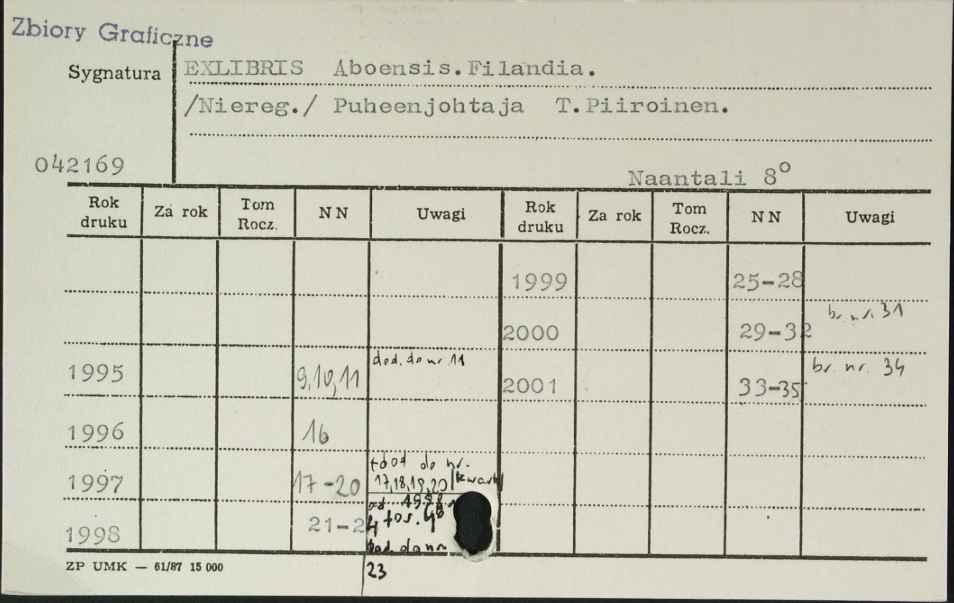 Zbiory Graficzne
Sygnatura
EXLIBRIS Aboensis.Filandia.
/Niereg./ Puheenjohtaja T.Piiroinen.
042169
Naantali 8°
Rok druku Za rok Tom Rocz. NN Uwagi Rok druku Za rok Tom Rocz. NN Uwagi
1999 25-28
2000 29-32 br. nr. 31
1995 9,10,11 dod. do nr 11 2001 33-35 br. nr. 34
1996 16
1997 17-20 +dod do nr. 17,18,19,20
1998 21-24 dod. do nr 23
ZP UMK — 61/87 15 000